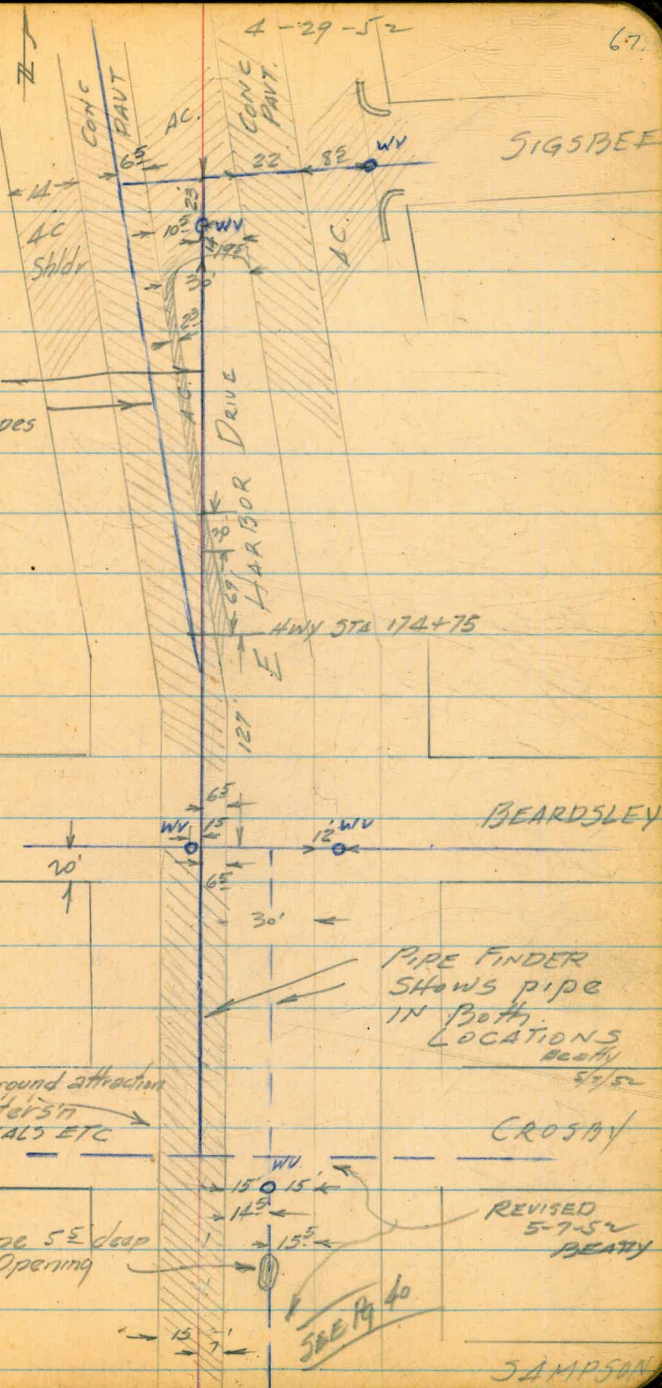 4-29-52
67.
N
CONC
PAVT
AC.
CONC
PAVT.
SIGSBEE
WV
6⁵
22
8⁵
14
23'
AC
Shldr
10⁵
WV
14
19⁵
AC.
A.C.
pes
E HARBOR DRIVE
30'
69'
HWY STA 174+75
127'
6⁵
BEARDSLEY
WV
15
12'
WV
20'
6⁵
30'
PIPE FINDER
SHOWS pipe
IN Both
LOCATIONS
Beatty
5/7/52
round attraction
ters'n
ALS ETC
CROSBY
WV
15' 15'
14⁵
REVISED
5-7-52
BEATTY
15⁵
ne 5⁵ deep
Opening
SEE Pg 40
15
7'
SAMPSON